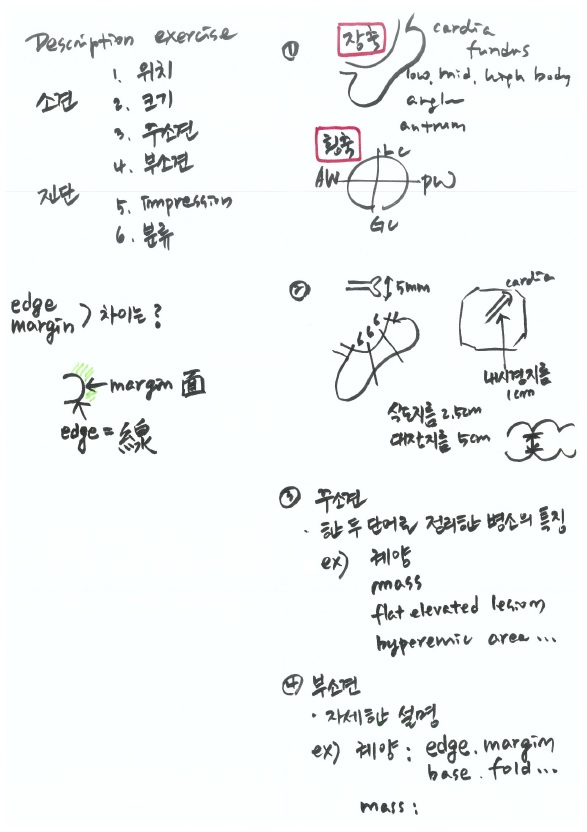 Description exercise
소견
1. 위치
2. 크기
3. 주소견
4. 부소견
진단
5. impression
6. 분류
edge
margin > 차이는?
margin 面
edge = 線
① 장축
cardia
fundus
low, mid, high body
angle
antrum
횡축
LC
AW
PW
GC
②
5mm
6 6 6
cardia
내시경지름
1cm
식도지름 2.5cm
대장지름 5cm
③ 주소견
· 한 두 단어로 정리한 병소의 특징
ex) 궤양
mass
flat elevated lesion
hyperemic area ...
④ 부소견
· 자세한 설명
ex) 궤양 : edge. margin
base. fold ...
mass :